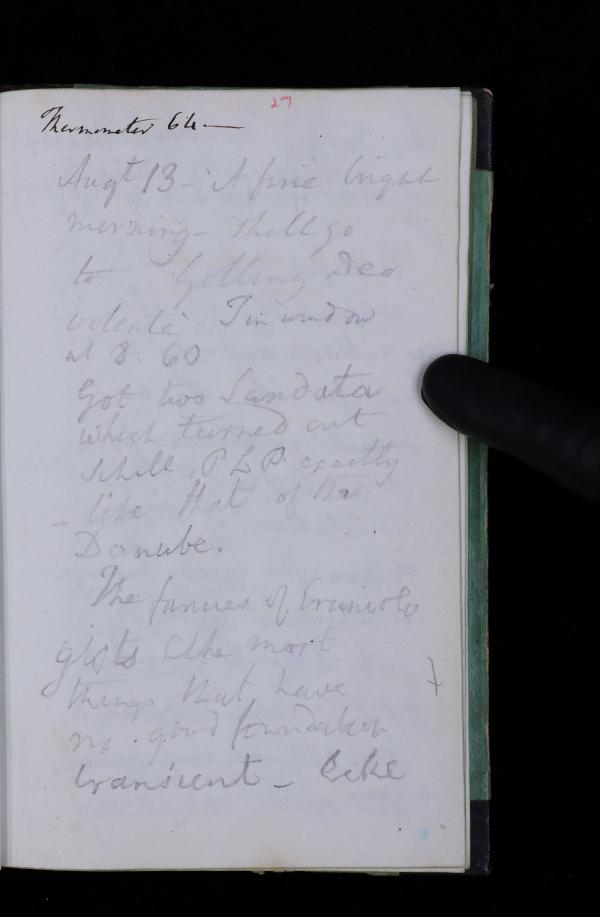 27
Thermometer 64 —
Augt 13 - A fine bright
morning - shall go
to Golling Deo
volente. T in window
at 8. 60
Got two Sandata
which turned out
Schill. P L P. exactly
like that of the
Danube.
The fames of Craniolo
gists like most
things that have
no good foundation
transient - Like